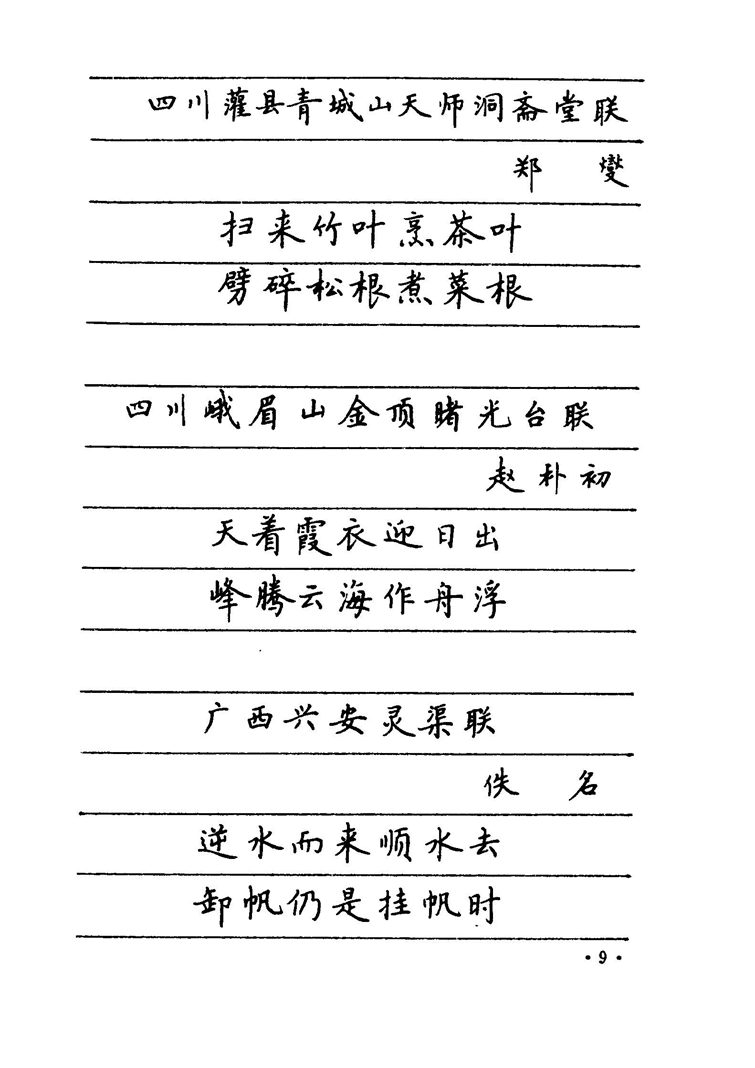 四川灌县青城山天师洞斋堂联
郑 燮
扫来竹叶烹茶叶
劈碎松根煮菜根
四川峨眉山金顶睹光台联
赵朴初
天着霞衣迎日出
峰腾云海作舟浮
广西兴安灵渠联
佚 名
逆水而来顺水去
卸帆仍是挂帆时
·9·